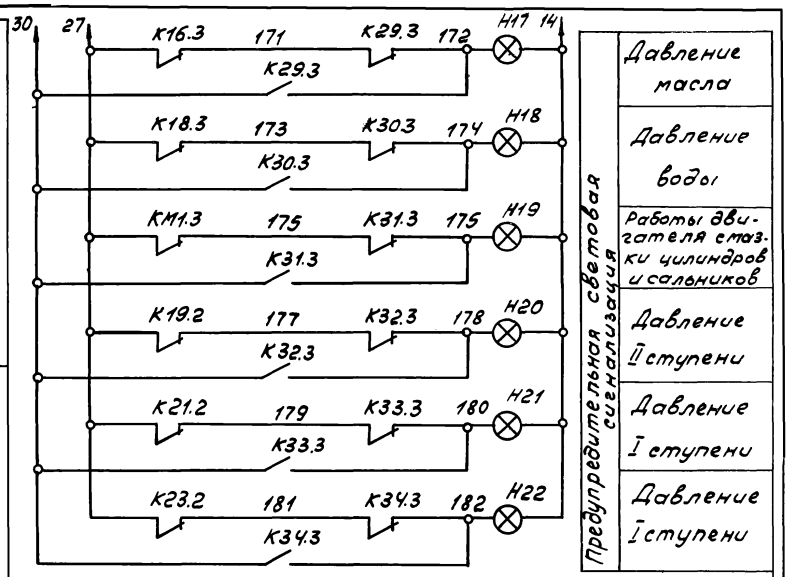 30 27 H17 14
K16.3 171 K29.3 172
K29.3
K18.3 173 K30.3 174 H18
K30.3
KM1.3 175 K31.3 175 H19
K31.3
K19.2 177 K32.3 178 H20
K32.3
K21.2 179 K33.3 180 H21
K33.3
K23.2 181 K34.3 182 H22
K34.3
Предупредительная световая
сигнализация
Давление
масла
Давление
воды
Работы дви-
гателя смаз-
ки цилиндров
и сальников
Давление
II ступени
Давление
I ступени
Давление
I ступени